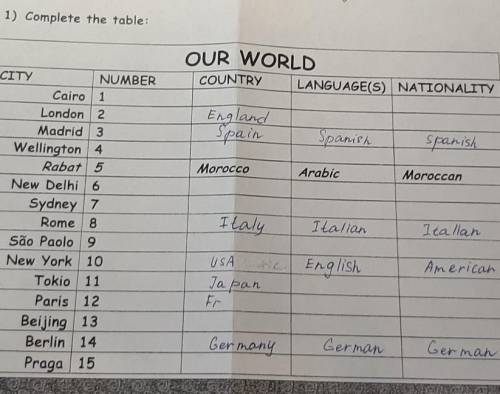 1) Complete the table:
OUR WORLD
CITY NUMBER COUNTRY LANGUAGE(S) NATIONALITY
Cairo 1
London 2 England
Madrid 3 Spain Spanish Spanish
Wellington 4
Rabat 5 Morocco Arabic Moroccan
New Delhi 6
Sydney 7
Rome 8 Italy Italian Italian
São Paolo 9
New York 10 USA English American
Tokio 11 Japan
Paris 12 Fr
Beijing 13
Berlin 14 Germany German German
Praga 15